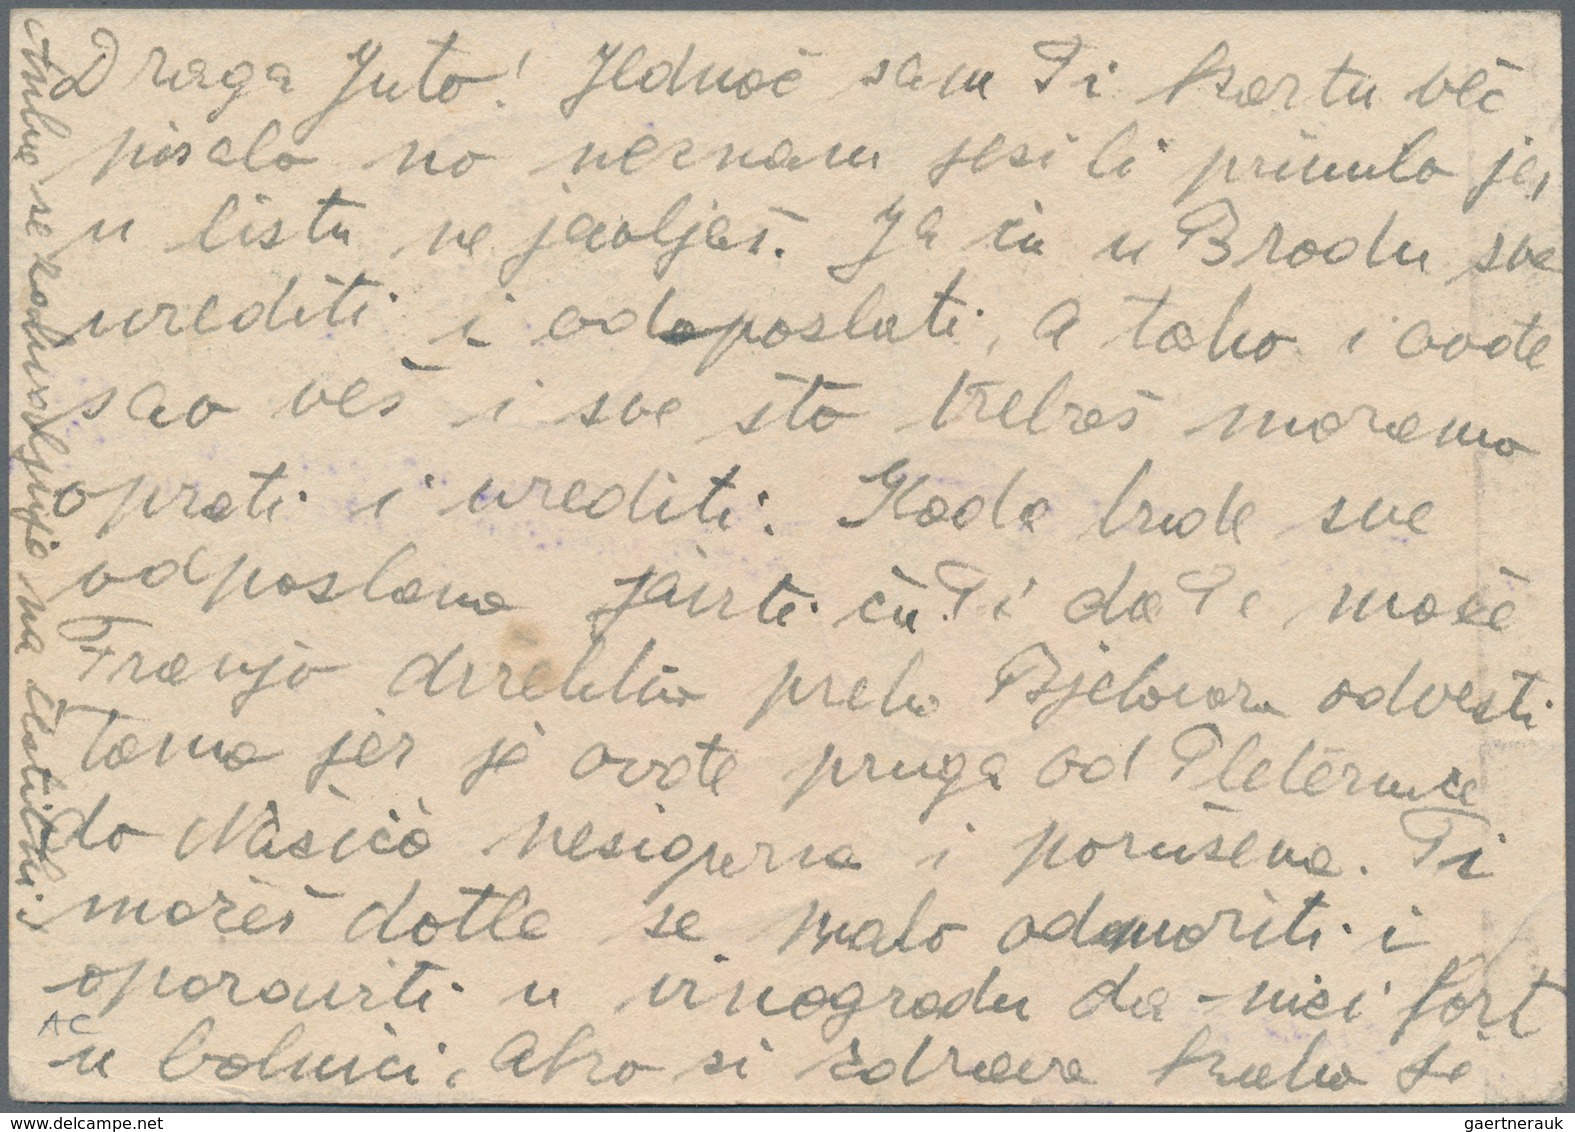 Draga Juto! Jednoč sam Ti kartu več
pisala no neznam jesi li primila je,
u listu ne javljaš. Ja ću u Brodu sve
urediti i odposlati, a tako i ovde
sav veš i sve što trebaš moramo
oprati i urediti. Kada bude sve
odposlano javiti ću Ti da Te može
Franjo direktno preko Bjelovara odvesti
tamo jer je ovde pruga od Pleternice
do Našica nesigurna i porušena. Ti
možeš dotle se malo odmoriti i
oporaviti u vinogradu da nisi fort
u bolnici. Ako si zdrava kako se
se zahvaljuje na čestitki.
AC
gaertnerauk@delcampe.net